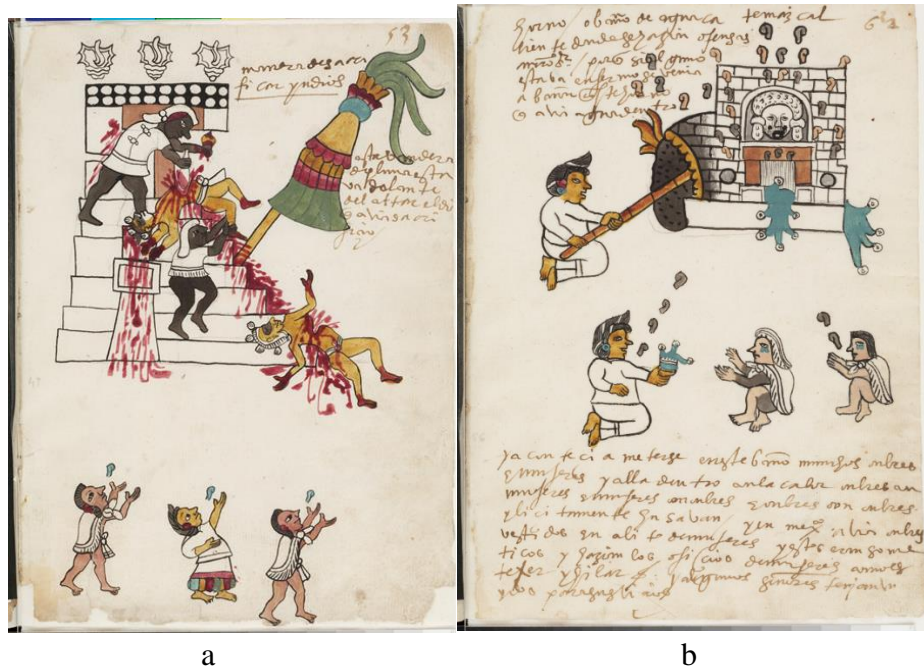 53
manera de sacri
ficar yndios
esta vandera
de pluma esta
va delante
del altar el di
a avia sacri
ficio
62
horno / o baño de agua ca temazcal
liente donde hazian ofensas
pero si alguno
estaba enfermo se venia
a bañar
avia agua dentro
ya con teci a meterse en este baño muchos onbres
e mugeres y alla dentro con la calor onbres con
mugeres e mugeres con onbres e onbres con onbres
ylicitamente husavan / y en avia onbres
vestidos en abito de mugeres y estos eran some
ticos y hazian los oficios de mugeres
texer y hilar / y algunos señores tenian
uno para sus vicios
a
b